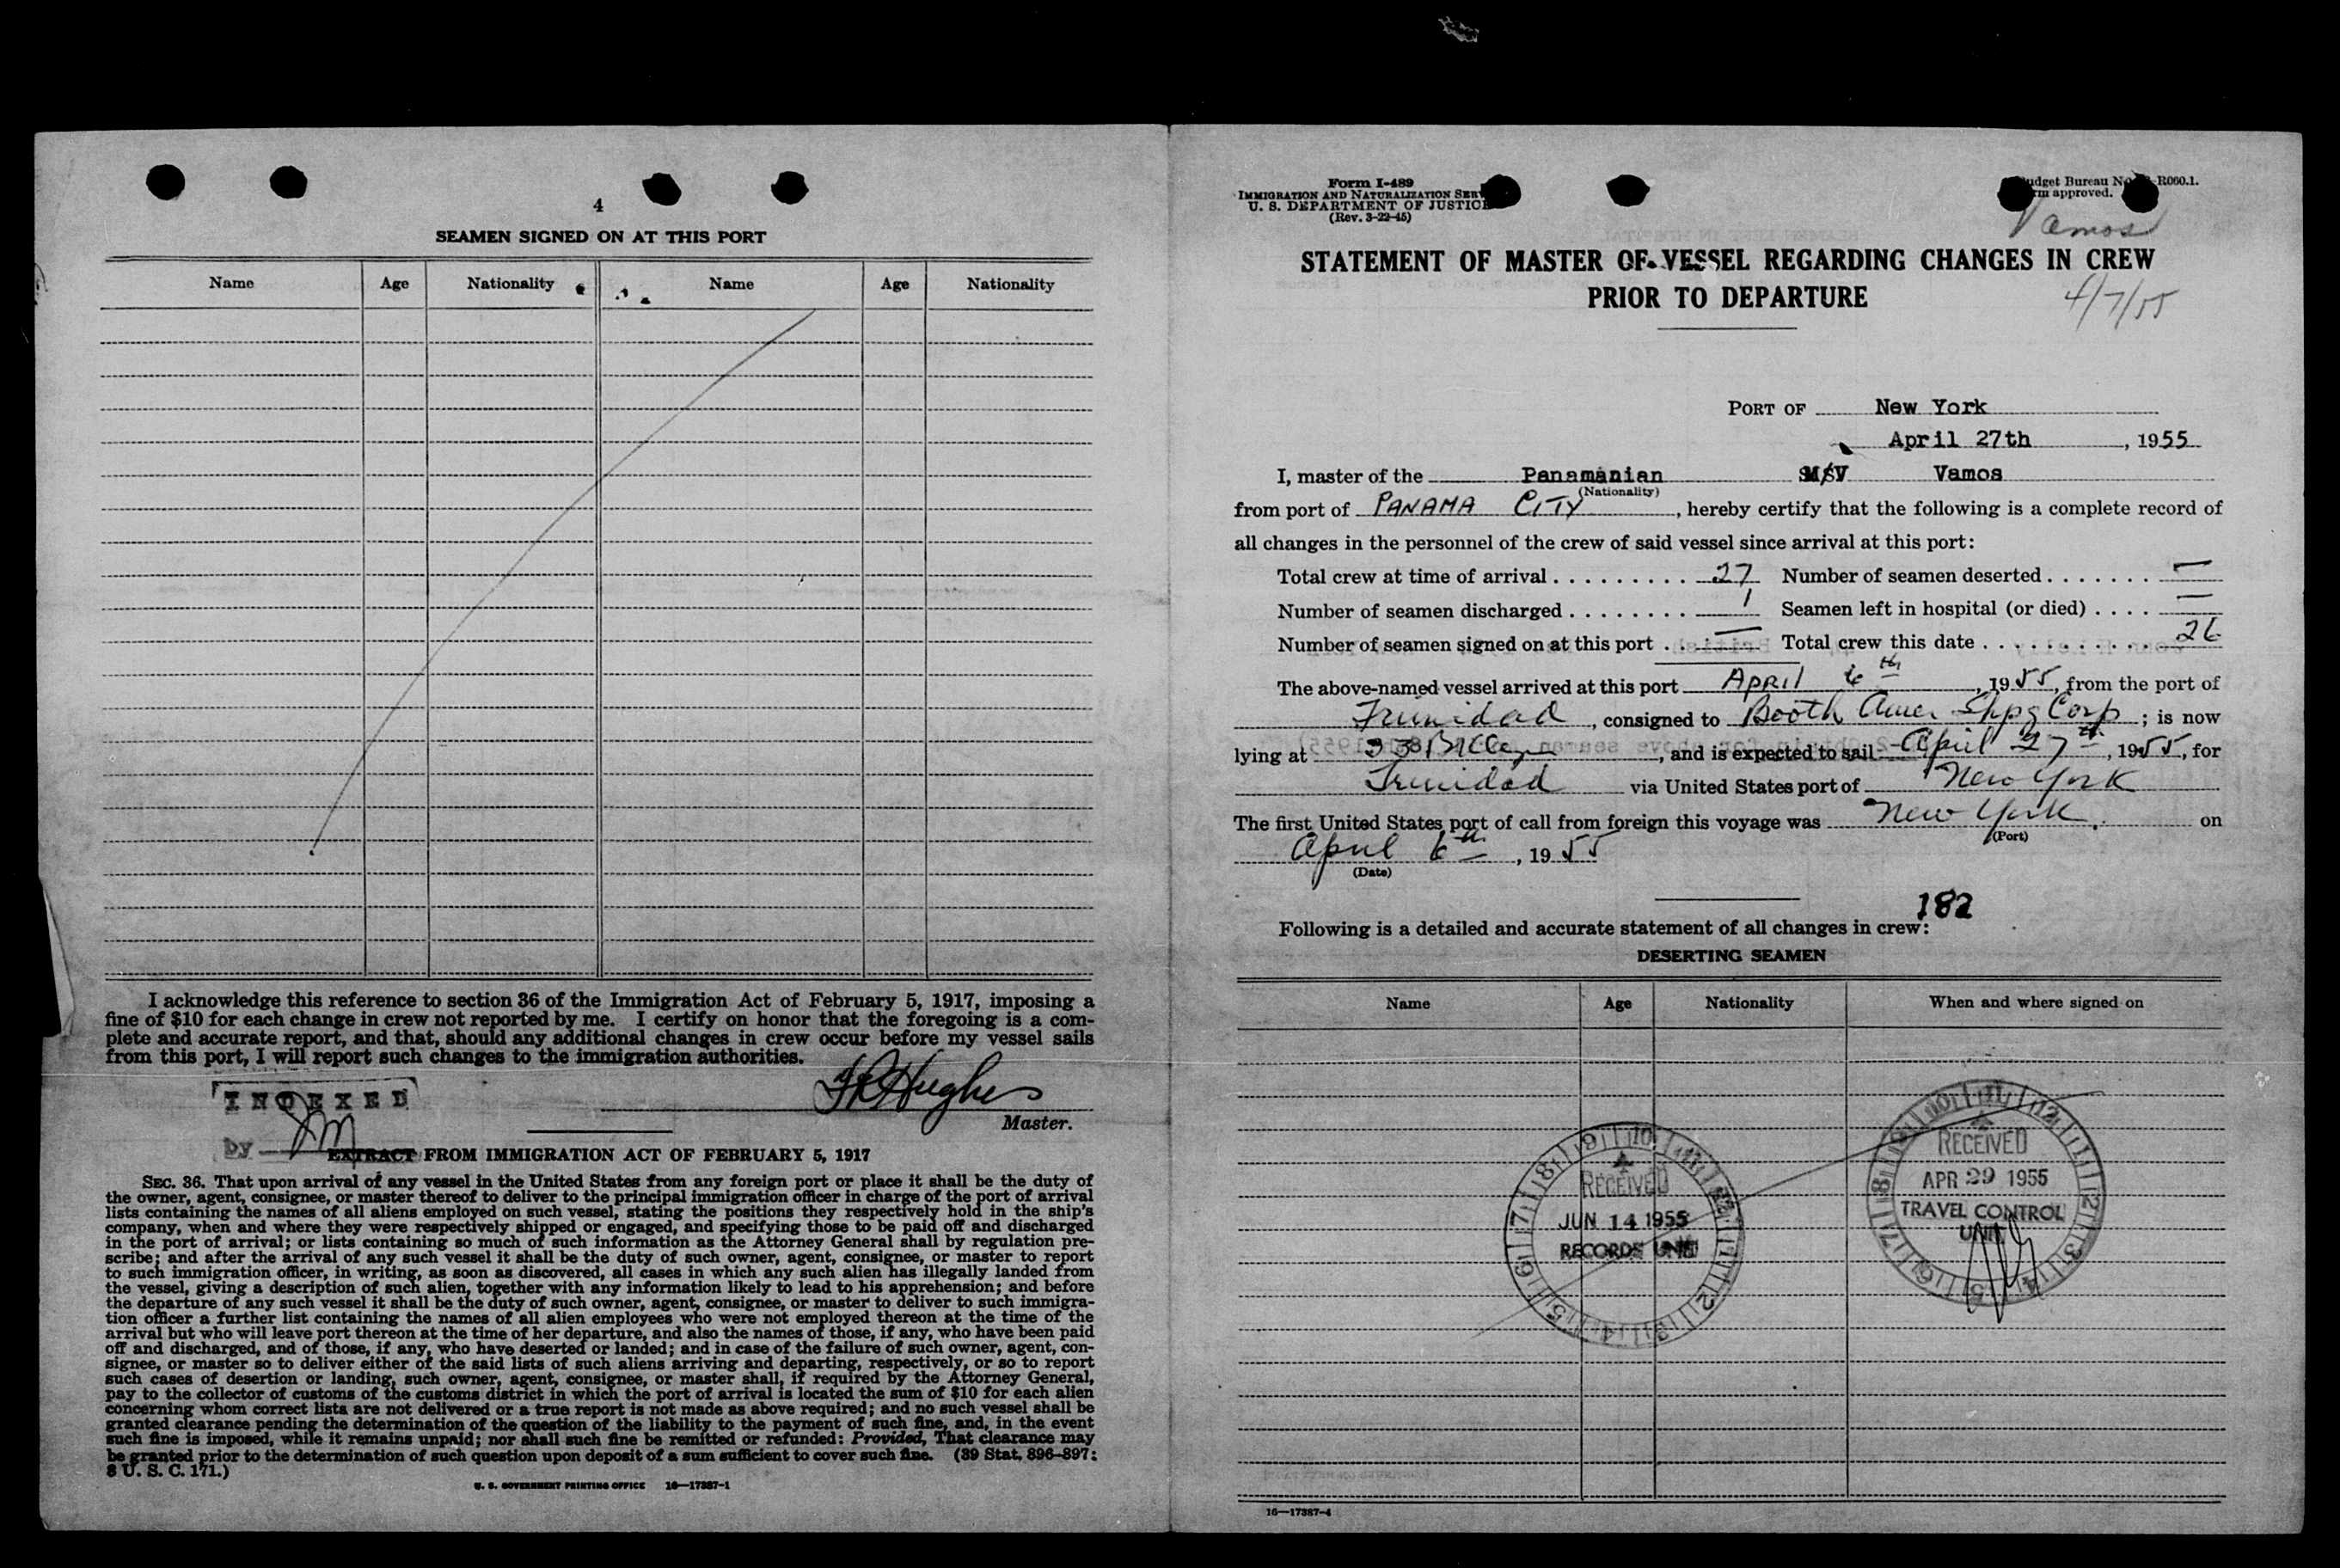 4
SEAMEN SIGNED ON AT THIS PORT
Name Age Nationality Name Age Nationality
I acknowledge this reference to section 36 of the Immigration Act of February 5, 1917, imposing a
fine of $10 for each change in crew not reported by me. I certify on honor that the foregoing is a com-
plete and accurate report, and that, should any additional changes in crew occur before my vessel sails
from this port, I will report such changes to the immigration authorities.
INDEXED
Hughes
Master.
by
EXTRACT FROM IMMIGRATION ACT OF FEBRUARY 5, 1917
SEC. 36. That upon arrival of any vessel in the United States from any foreign port or place it shall be the duty of
the owner, agent, consignee, or master thereof to deliver to the principal immigration officer in charge of the port of arrival
lists containing the names of all aliens employed on such vessel, stating the positions they respectively hold in the ship's
company, when and where they were respectively shipped or engaged, and specifying those to be paid off and discharged
in the port of arrival; or lists containing so much of such information as the Attorney General shall by regulation pre-
scribe; and after the arrival of any such vessel it shall be the duty of such owner, agent, consignee, or master to report
to such immigration officer, in writing, as soon as discovered, all cases in which any such alien has illegally landed from
the vessel, giving a description of such alien, together with any information likely to lead to his apprehension; and before
the departure of any such vessel it shall be the duty of such owner, agent, consignee, or master to deliver to such immigra-
tion officer a further list containing the names of all alien employees who were not employed thereon at the time of the
arrival but who will leave port thereon at the time of her departure, and also the names of those, if any, who have been paid
off and discharged, and of those, if any, who have deserted or landed; and in case of the failure of such owner, agent, con-
signee, or master so to deliver either of the said lists of such aliens arriving and departing, respectively, or so to report
such cases of desertion or landing, such owner, agent, consignee, or master shall, if required by the Attorney General,
pay to the collector of customs of the customs district in which the port of arrival is located the sum of $10 for each alien
concerning whom correct lists are not delivered or a true report is not made as above required; and no such vessel shall be
granted clearance pending the determination of the question of the liability to the payment of such fine, and, in the event
such fine is imposed, while it remains unpaid; nor shall such fine be remitted or refunded: Provided, That clearance may
be granted prior to the determination of such question upon deposit of a sum sufficient to cover such fine. (39 Stat. 896-897;
8 U. S. C. 171.)
U. S. GOVERNMENT PRINTING OFFICE 16—17387-1
Form I-489
IMMIGRATION AND NATURALIZATION
U. S. DEPARTMENT OF JUSTICE
(Rev. 3-22-45)
Budget Bureau R060.1.
approved.
Vamos
STATEMENT OF MASTER OF VESSEL REGARDING CHANGES IN CREW
PRIOR TO DEPARTURE
4/7/55
PORT OF New York
April 27th, 1955
I, master of the Panamanian M/V Vamos
(Nationality)
from port of PANAMA CITY, hereby certify that the following is a complete record of
all changes in the personnel of the crew of said vessel since arrival at this port:
Total crew at time of arrival . . . . . . . . . . 27 Number of seamen deserted . . . . . . . —
Number of seamen discharged . . . . . . . . 1 Seamen left in hospital (or died) . . . . —
Number of seamen signed on at this port . . — Total crew this date . . . . . . . . . . . 26
The above-named vessel arrived at this port APRIL 6th, 1955, from the port of
Trinidad, consigned to Booth Amer Shpg Corp; is now
lying at 23, and is expected to sail April 27th, 1955, for
Trinidad via United States port of New York
The first United States port of call from foreign this voyage was New York. on
(Port)
April 6th, 1955
(Date)
182
Following is a detailed and accurate statement of all changes in crew:
DESERTING SEAMEN
Name Age Nationality When and where signed on
RECEIVED
JUN 14 1955
RECORDS UNIT
RECEIVED
APR 29 1955
TRAVEL CONTROL
UNIT
16—17387-4